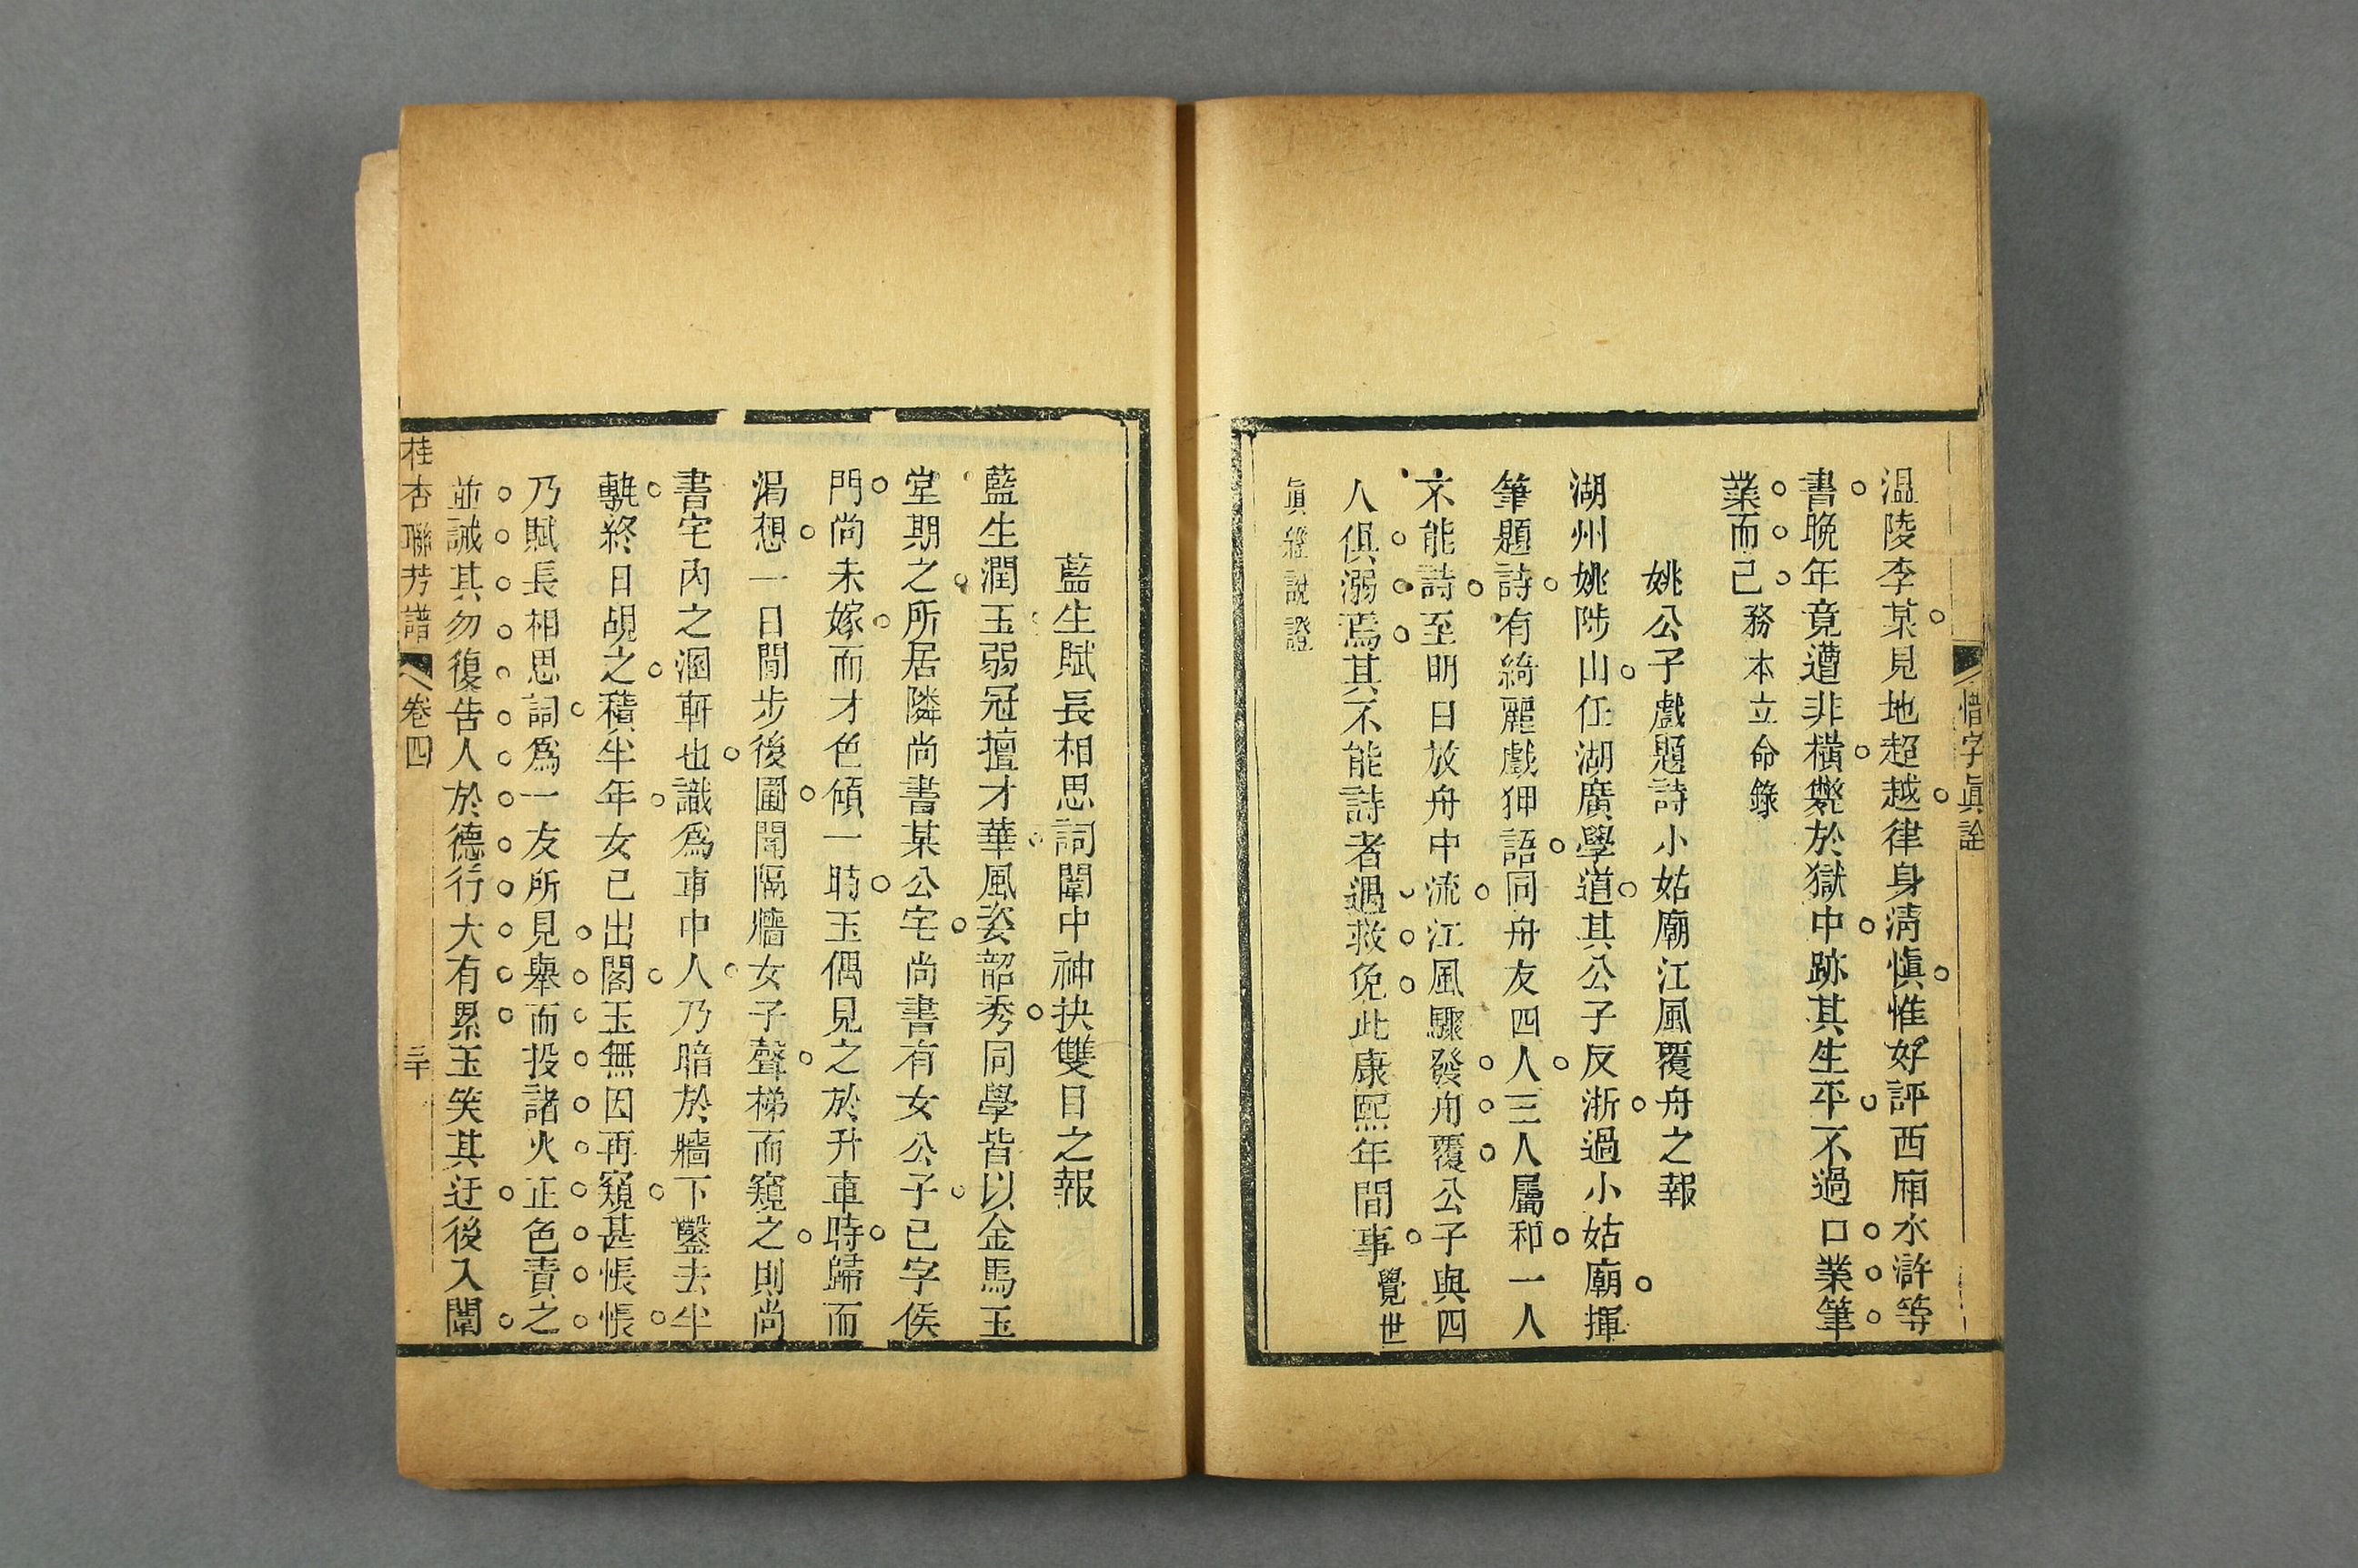 惜字眞詮
温陵李某見地超越律身淸愼惟好評西廂水滸等
書晩年竟遭非橫斃於獄中跡其生平不過口業筆
業而已務本立命錄
姚公子戲題詩小姑廟江風覆舟之報
湖州姚陟山任湖廣學道其公子反浙過小姑廟揮
筆題詩有綺麗戲狎語同舟友四人三人屬和一人
不能詩至明日放舟中流江風驟發舟覆公子與四
人俱溺焉其不能詩者遇救免此康熙年間事覺世
眞經說證
藍生賦長相思詞闈中神抉雙目之報
藍生潤玉弱冠擅才華風姿韶秀同學皆以金馬玉
堂期之所居隣尚書某公宅尚書有女公子已字侯
門尚未嫁而才色傾一時玉偶見之於升車時歸而
渴想一日閒步後園聞隔牆女子聲梯而窺之則尚
書宅內之溷軒也識爲車中人乃暗於牆下鑿去半
甎終日覘之積半年女已出閣玉無因再窺甚悵悵
乃賦長相思詞爲一友所見舉而投諸火正色責之
並誡其勿復告人於德行大有累玉笑其迂後入闈
桂杏聯芳譜 卷四 三十